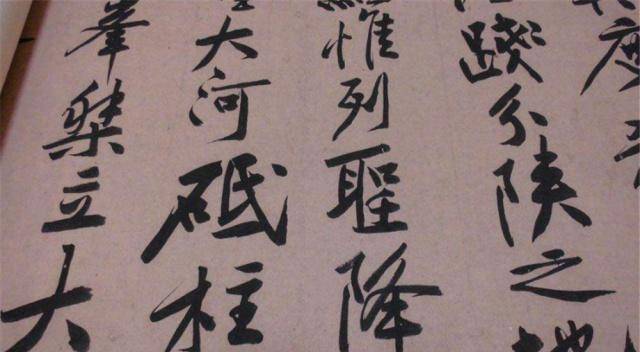 度
踐分陝之地
惟列聖降
大河砥柱
峯桀立大